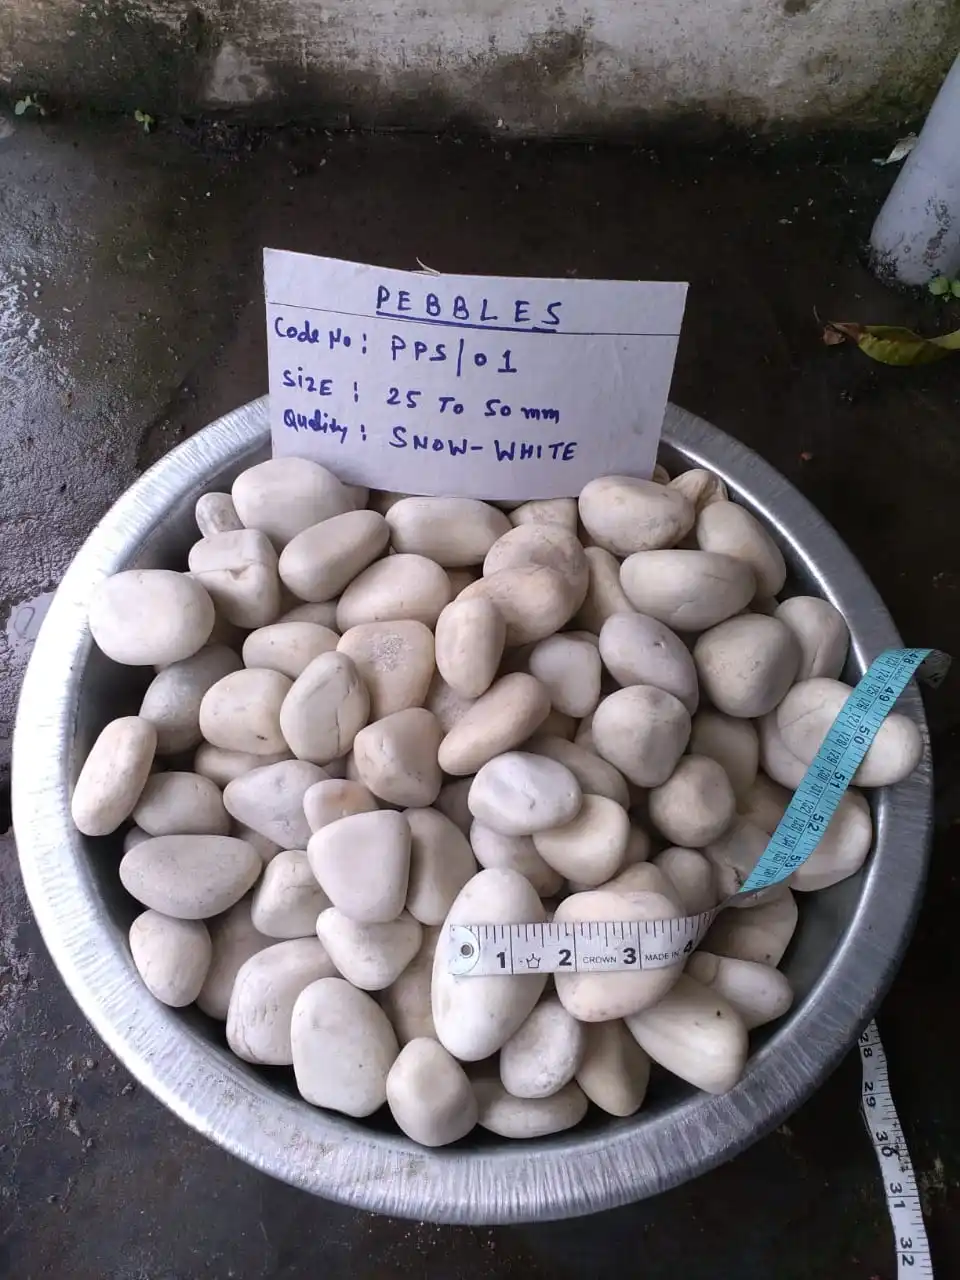 PEBBLES
Code No: PPS/01
SIZE : 25 To 50 mm
Quality : SNOW-WHITE
48
49
50
51
52
53
1 2 CROWN 3 MADE IN 4
28
29
30
31
32